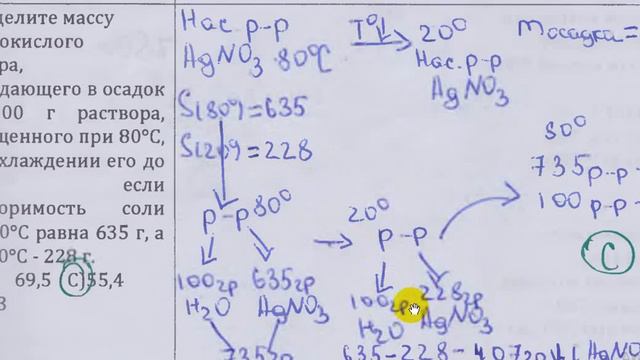 делите массу
окислого
ра,
дающего в осадок
00 г раствора,
щенного при 80°С,
хлаждении его до
если
оримость соли
0°С равна 635 г, а
0°С - 228 г.
69,5 С)55,4
3
Нас. р-р
AgNO3 80°С
T°↓
20°
Нас. р-р
AgNO3
mосадка=
S(80°)=635
S(20°)=228
р-р 80°
100гр 635гр
H2O AgNO3
735гр
20°
р-р
100гр 228гр
H2O AgNO3
635-228=407гр↓(AgNO
80°
735р-р-
100р-р-
С